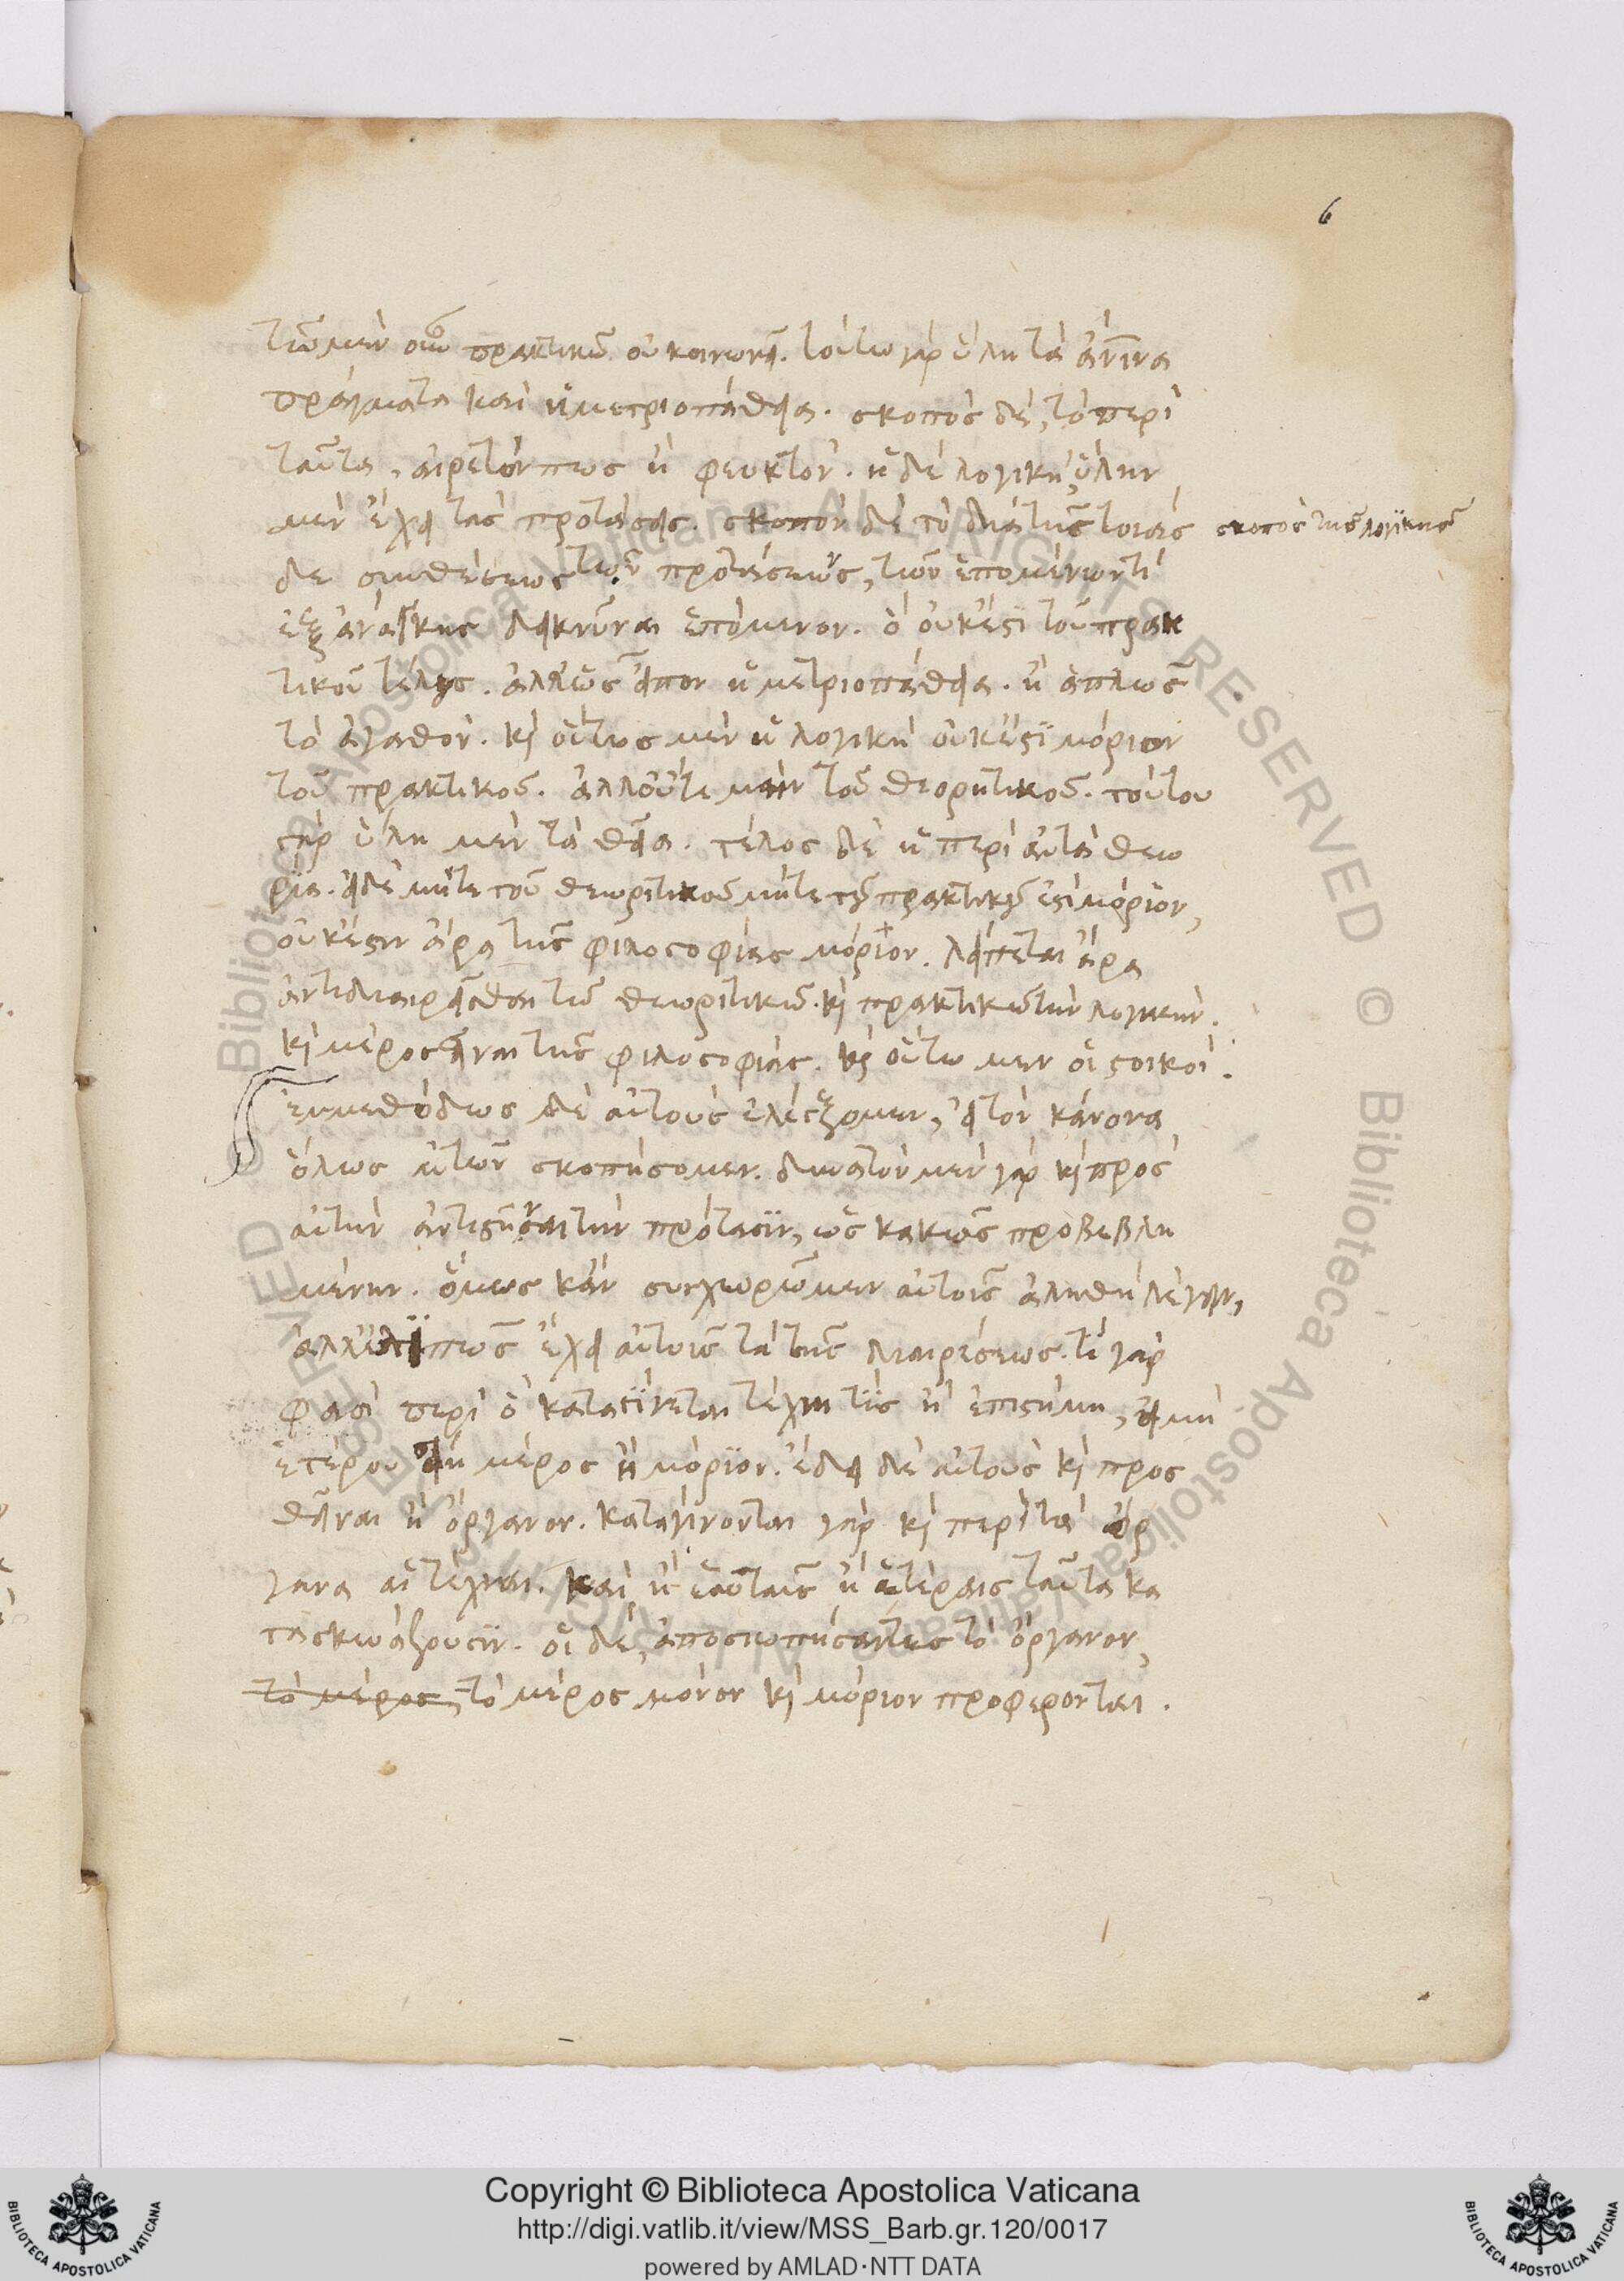 6
τῶ μὲν οὖν πρακτικῶ οὐ κοινωνεῖ. τούτω γὰρ ὕλη τὰ ἀνῖνα
πράγματα καὶ ἡ μετριοπάθεια. σκοπὸς δὲ, τὸ περὶ
ταῦτα, αἱρετόν πως ἢ φευκτόν. ἡ δὲ λογικὴ, ὕλην
μὲν ἔχει τὰς προτάσεις. σκοπὸν δὲ τὸ διὰ τῆς τοιᾶς
σκοπὸς τῆς λογικῆς
δε συνθέσεως τῶν προτάσεων, τῶν ἑπομένων τὶ
ἐξ ἀνάγκης δεικνῦναι ἑπόμενον. ὃ οὐκ ἔστι τοῦ πρακ
τικοῦ τέλος. ἀλλ' ὡς εἶπον ἡ μετριοπάθεια. ἢ ἁπλῶς
τὸ ἀγαθόν. καὶ οὕτως μὲν ἡ λογικὴ οὐκ ἔστι μόριον
τοῦ πρακτικοῦ. ἀλλ' οὔτε μὴν τοῦ θεορητικοῦ. τούτου
γὰρ ὕλη μὲν τὰ θεῖα. τέλος δὲ ἡ περὶ αὐτὰ θεω
ρία. εἰ δὲ μήτε τοῦ θεωρητικοῦ μήτε τοῦ πρακτικοῦ ἐστὶ μόριον,
οὐκ ἔστιν ἄρα τῆς φιλοσοφίας μόριον. λείπεται ἄρα
ἀντιδιαιρεῖσθαι τῶ θεωρητικῶ καὶ πρακτικῶ τὴν λογικήν.
καὶ μέρος εἶναι τῆς φιλοσοφίας. καὶ οὕτω μὲν οἱ στοικοί.
ἐμμεθόδως δὲ αὐτοὺς ἐλέγξομεν, εἰ τὸν κάνονα
ὅλως αὐτῶν σκοπήσομεν. δυνατὸν μὲν γὰρ καὶ πρὸς
αὐτὴν ἀντιστῆναι τὴν πρότασιν, ὡς κακῶς προβεβλη
μένην. ὅμως κἂν συγχωρῶμεν αὐτοῖς ἀληθῆ λέγειν,
ἀλλ' ἐλλιπῶς ἔχει αὐτοῖς τὰ τῆς διαιρέσεως. τί γάρ
φασι περὶ ὃ καταγίνεται τέχνη τίς ἢ ἐπιστήμη, εἰ μὴ
ἑτέρου εἴη μέρος ἢ μόριον. ἔδει δὲ αὐτοὺς καὶ προσ
θεῖναι ἢ ὄργανον. καταγίνονται γὰρ καὶ περὶ τὰ ὄρ
γανα αἱ τέχναι. καὶ ἢ ἑαυταῖς ἢ ἑτέραις ταῦτα κα
τασκευάζουσιν. οἱ δὲ, ἀποσιωπήσαντες τὸ ὄργανον,
τὸ μέρος, τὸ μέρος μόνον καὶ μόριον προφέρονται.
Copyright © Biblioteca Apostolica Vaticana
http://digi.vatlib.it/view/MSS_Barb.gr.120/0017
powered by AMLAD·NTT DATA